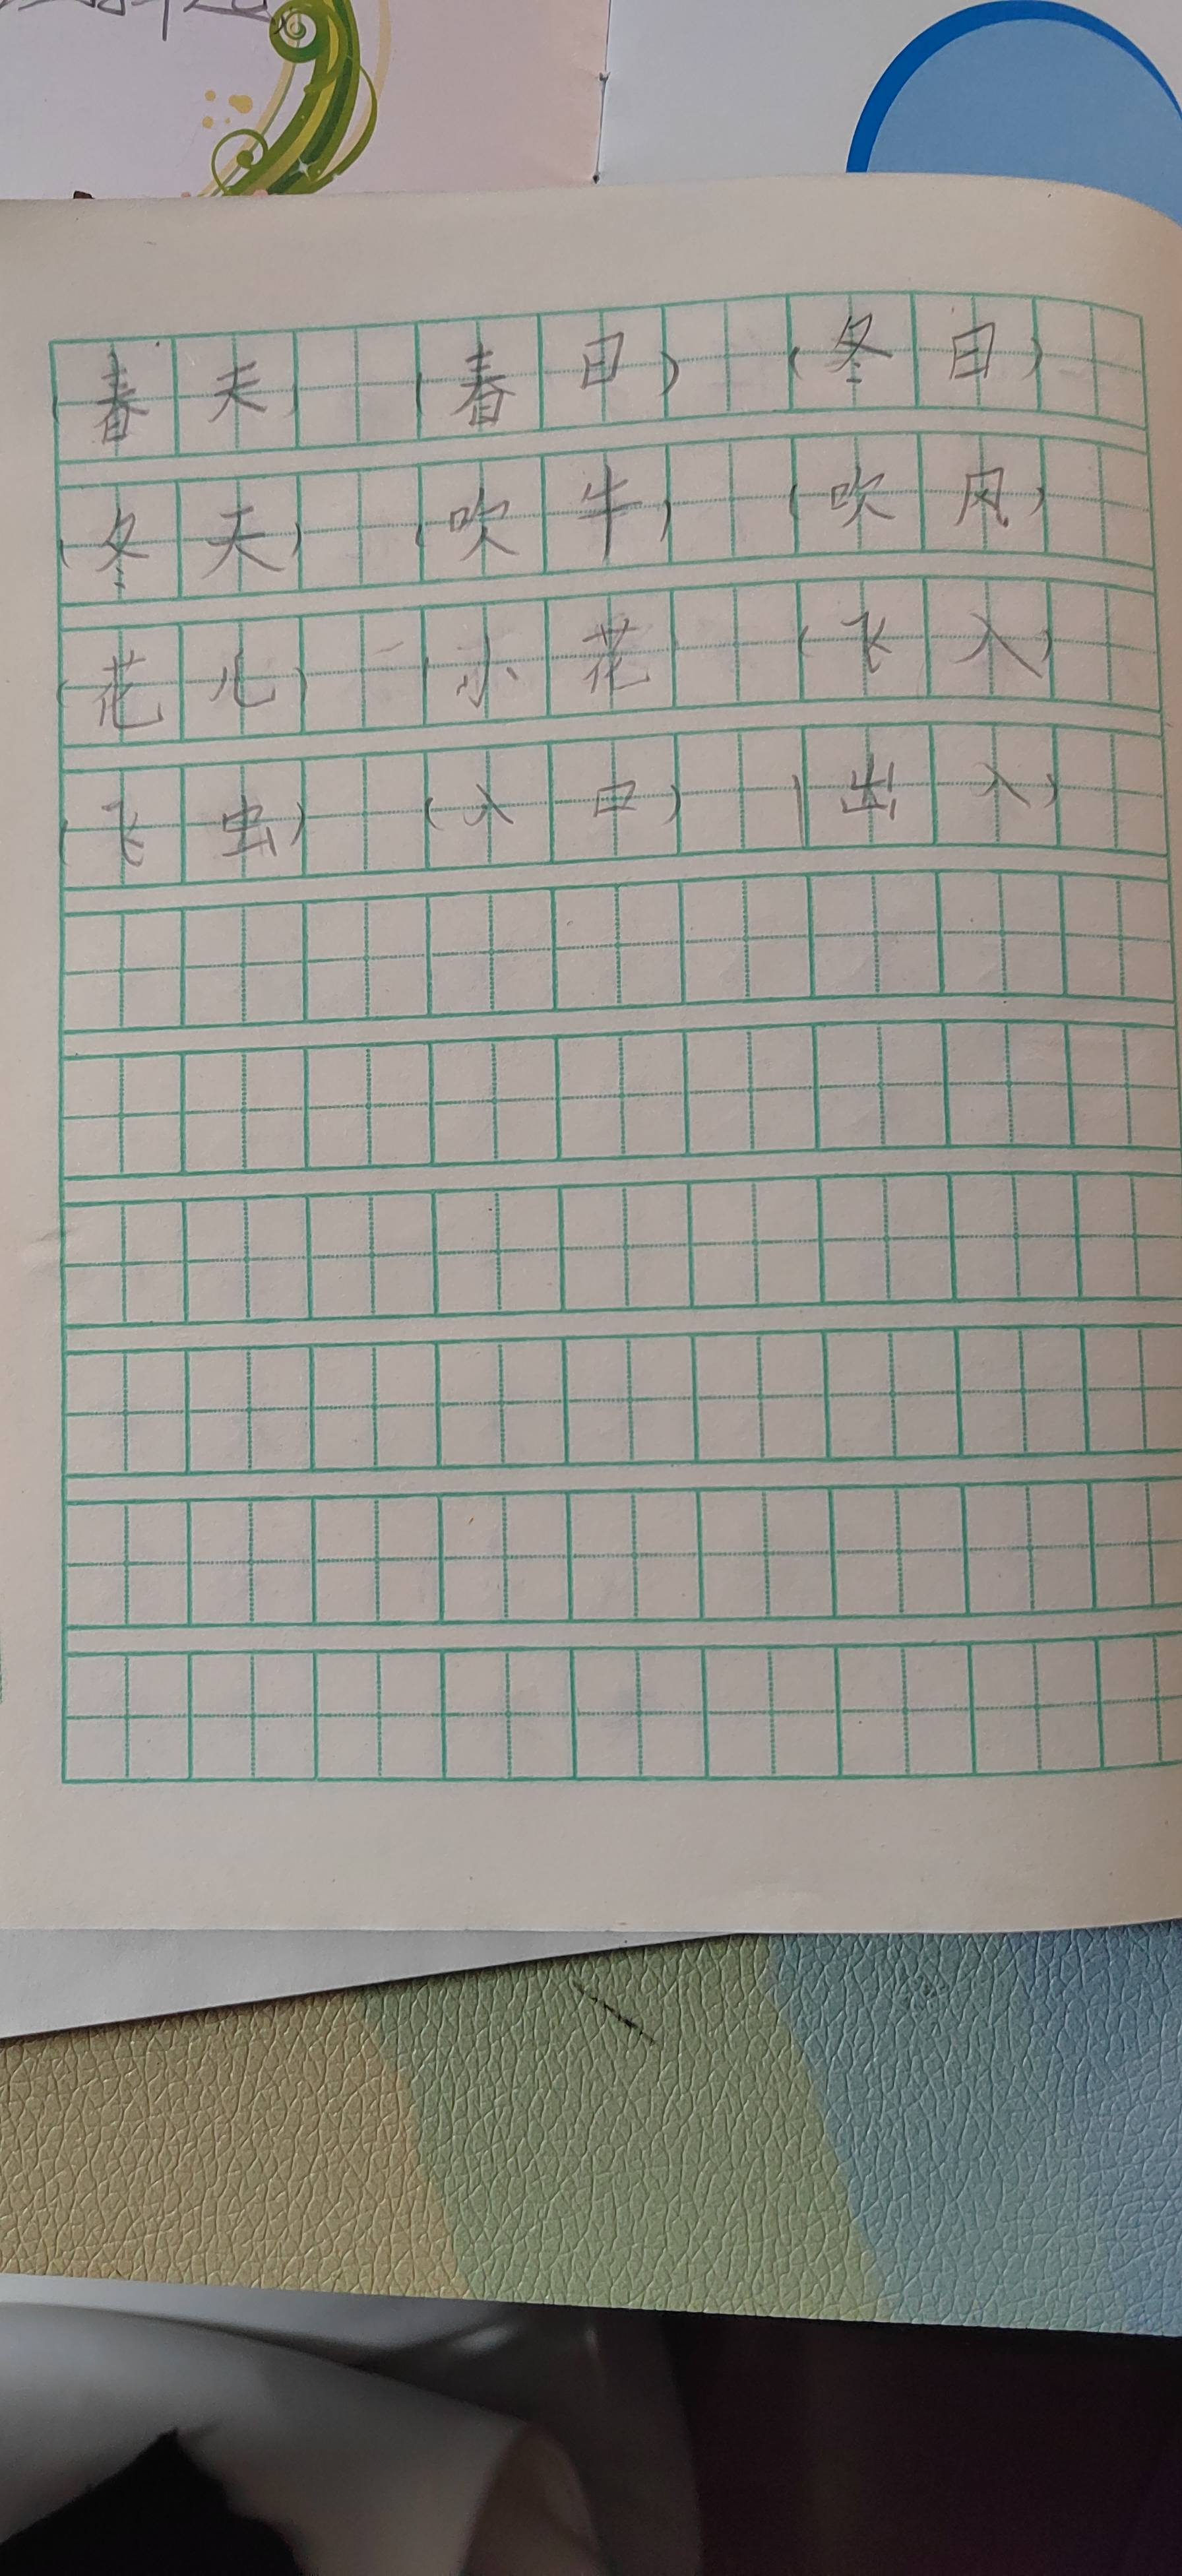 (春天) (春日) (冬日)
(冬天) (吹牛) (吹风)
(花心) (小花 (飞入)
(飞虫) (入口) (出入)